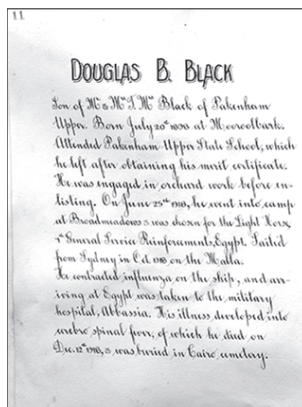 11
DOUGLAS B. BLACK
Son of Mr & Mrs J. Mc Black of Pakenham
Upper. Born July 20th at Mooroolbark.
Attended Pakenham Upper State School, which
he left after obtaining his merit certificate.
He was engaged in orchard work before en-
listing. On June 25th he went into camp
at Broadmeadows & was chosen for the Light Horse,
General Service Reinforcements, Egypt. Sailed
from Sydney in Oct. on the Malta.
He contracted influenza on the ship, and arr-
iving at Egypt was taken to the military
hospital, Abbassia. His illness developed into
cerebro spinal fever, of which he died on
Dec. 12th & was buried in Cairo cemetery.